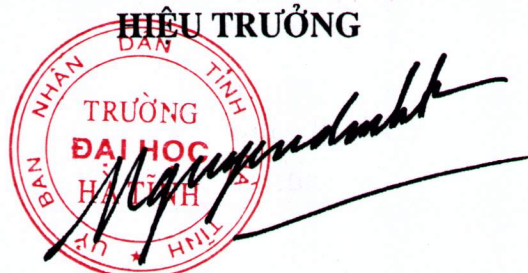 HIỆU TRƯỞNG
UỶ BAN NHÂN DÂN TỈNH HÀ TĨNH ★
TRƯỜNG
ĐẠI HỌC
HÀ TĨNH